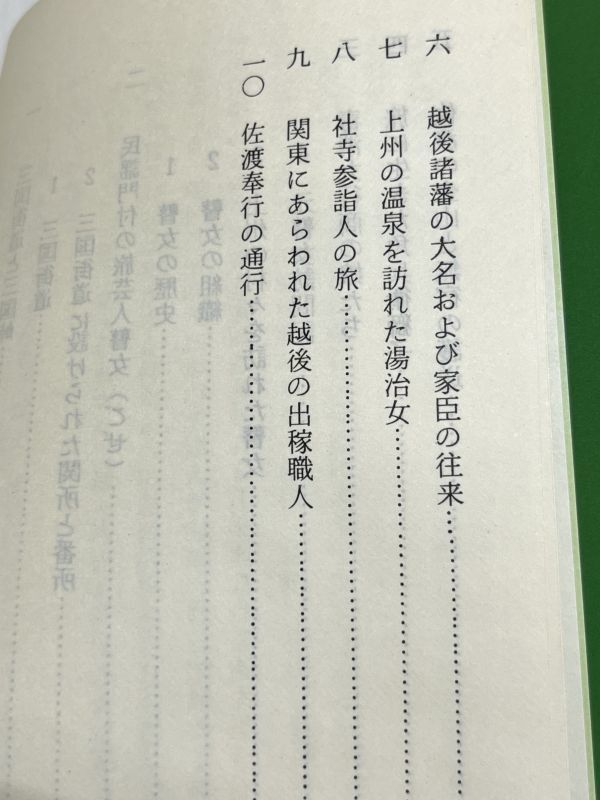 六 越後諸藩の大名および家臣の往来……………………
七 上州の温泉を訪れた湯治女……………………
八 社寺参詣人の旅……………………
九 関東にあらわれた越後の出稼職人……………………
一〇 佐渡奉行の通行……………………